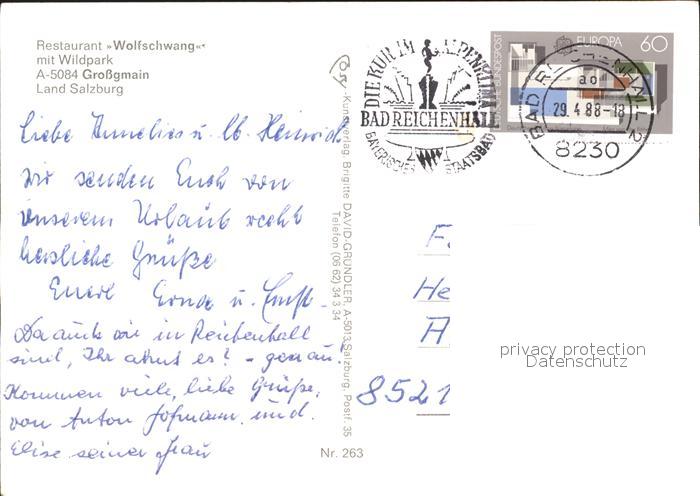 Restaurant »Wolfschwang«
mit Wildpark
A-5084 Großgmain
Land Salzburg
Liebe Annelies u. lb. Heinrich
wir senden Euch von
unserem Urlaub recht
herzliche Grüße
Eure Erna u. Ernst.
Da auch wir in Reichenhall
sind, Ihr ahnt es? - genau.
Kommen viele, liebe Grüße,
von Anton Hofmann und
Elise seiner Frau
Kunstverlag Brigitte DAVID-GRÜNDLER, A-5013 Salzburg, Postf. 35
Telefon (06 62) 34 3 34
Nr. 263
DIE KUR IM ALPENKLIMA
BAD REICHENHALL
BAYERISCHES STAATSBAD
EUROPA 60
DEUTSCHE BUNDESPOST
BAD REICHENHALL 2
ao
29.4.88-18
8230
F.
He
A
8521
privacy protection
Datenschutz